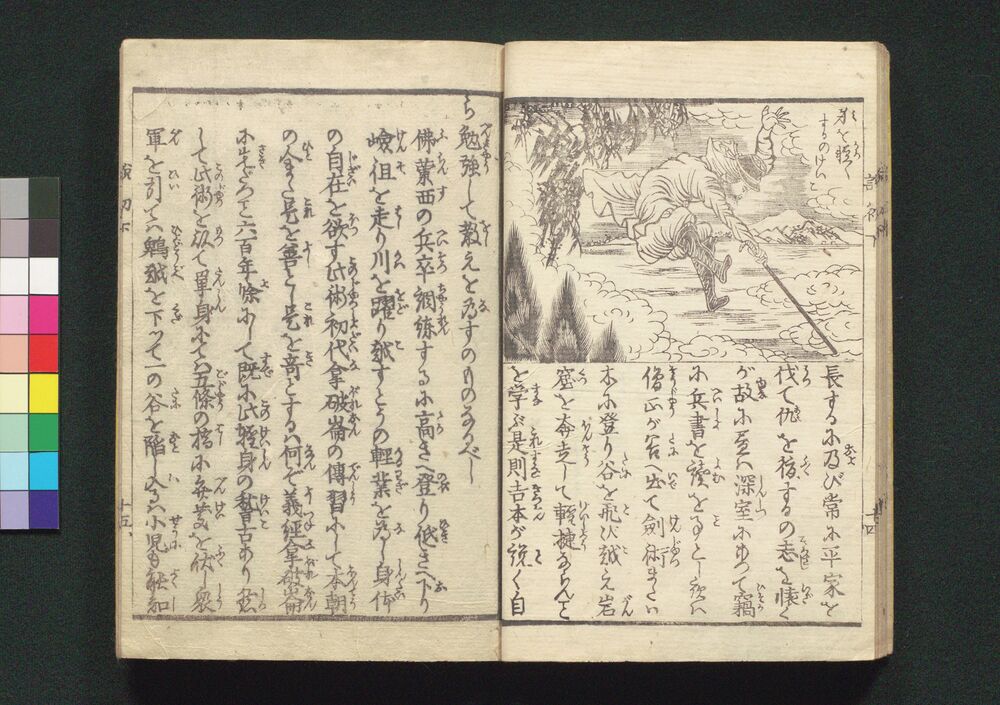 身を軽く
するのけいこ
長するに及び常に平家を
伐て仇を復するの志を懐く
が故に昼は深室にあつて竊
に兵書を読をことゝし夜は
僧正が谷へ出て劍術または
木に登り谷を飛び越え岩
窟を奔走して軽捷ならんと
を学ぶ是則吉本が説く自
ら勉強して教えをなすのものなるべし
佛蘭西の兵卒調練するに高きへ登り低きへ下り
嶮岨を走り川を躍り越すとうの軽業を為し身体
の自在を欲す此術初代拿破崙の傳習にして本朝
の今また是を善とし是を奇とするは何ぞ義經拿破崙
に先だつこと六百年餘にして既に此軽身の稽古あり
して此術を以て單身にては五條の橋に辨慶を伏し衆
軍を引ては鵯越を下つて一の谷を陥し入るは小児も能知
十四
十五